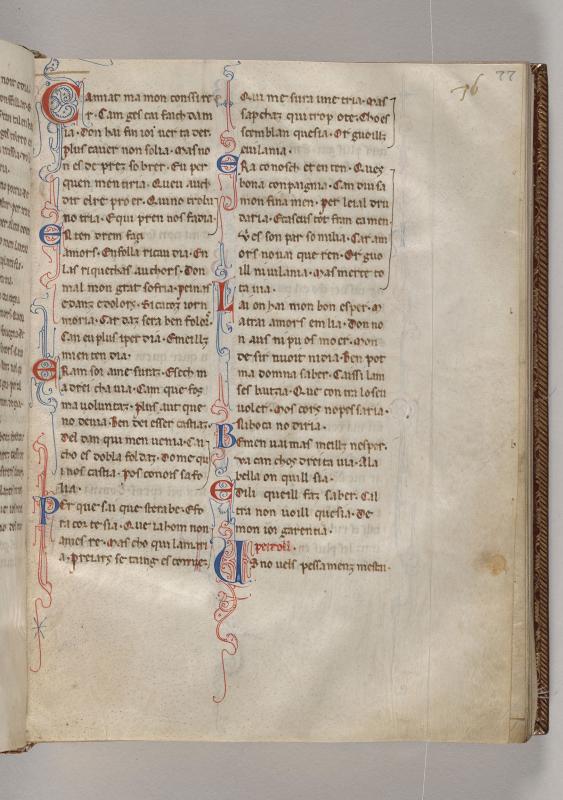 76 77
Camiat ma mon consire
r. Cam ges cai fach dam
ia. Don hai fin ioi uer ta der.
plus cauer non solia. Mas no
n es de prez sobrer. Eu per
quen men tiria. Queu auch
dir el re pro er. Qui no troba
no tria. E qui pren nos fadia.
E
amors. En folla ricu dia. En
las riquechas auchors. Don
mal mon grat sofria. penas
e danz e dolors.
moria. Car daz sera ben folors
Can eu plus iper dia. E meillz
mien ten dia.
Eram soi aire uirtz.
a drei cha uia. Cam que fos
ma uoluntaz. plus aut que
no deuia. Ben dei esser castiaz.
Del dan qui men uenia. Ca
cho es dobla foldaz. Dome qu
i nos castia. Pos conois sa fo
lia.
Per que sai que sterabe. Efo
ra cor te sia. Que ia hom non
ames re. Mas cho qui lam ri
a.
Qui me fura une tria. Mas
sapchaz qui trop ote. Cho es
semblan questia. Or guoill
euilania.
Era conosch et en ten. Ques
bona conpaignia. Can dui sa
mon fina men. per leial dru
daria.
es son par so milia. Car am
ors no uai que ren. Or guo
ill ni uilania. Mas merce to
ta uia.
Lai on hai mon bon esper. M
atrai amors em lia. Don no
n aus ni pu os mo er. Mon
de sir nuoit ni dia. Ben pot
ma domna saber. Caissi lam
ses bauzia. Que con tra lo seu
uoler. Mos cors nopes saria.
sa boca no diria.
Bemen uai mas meillz nesper.
ua can chos dreita uia. Ala
bella on quill sia.
Edili queill faz saber. Cal
tra non uoill questia. De
mon ioi garentia.
peirol.